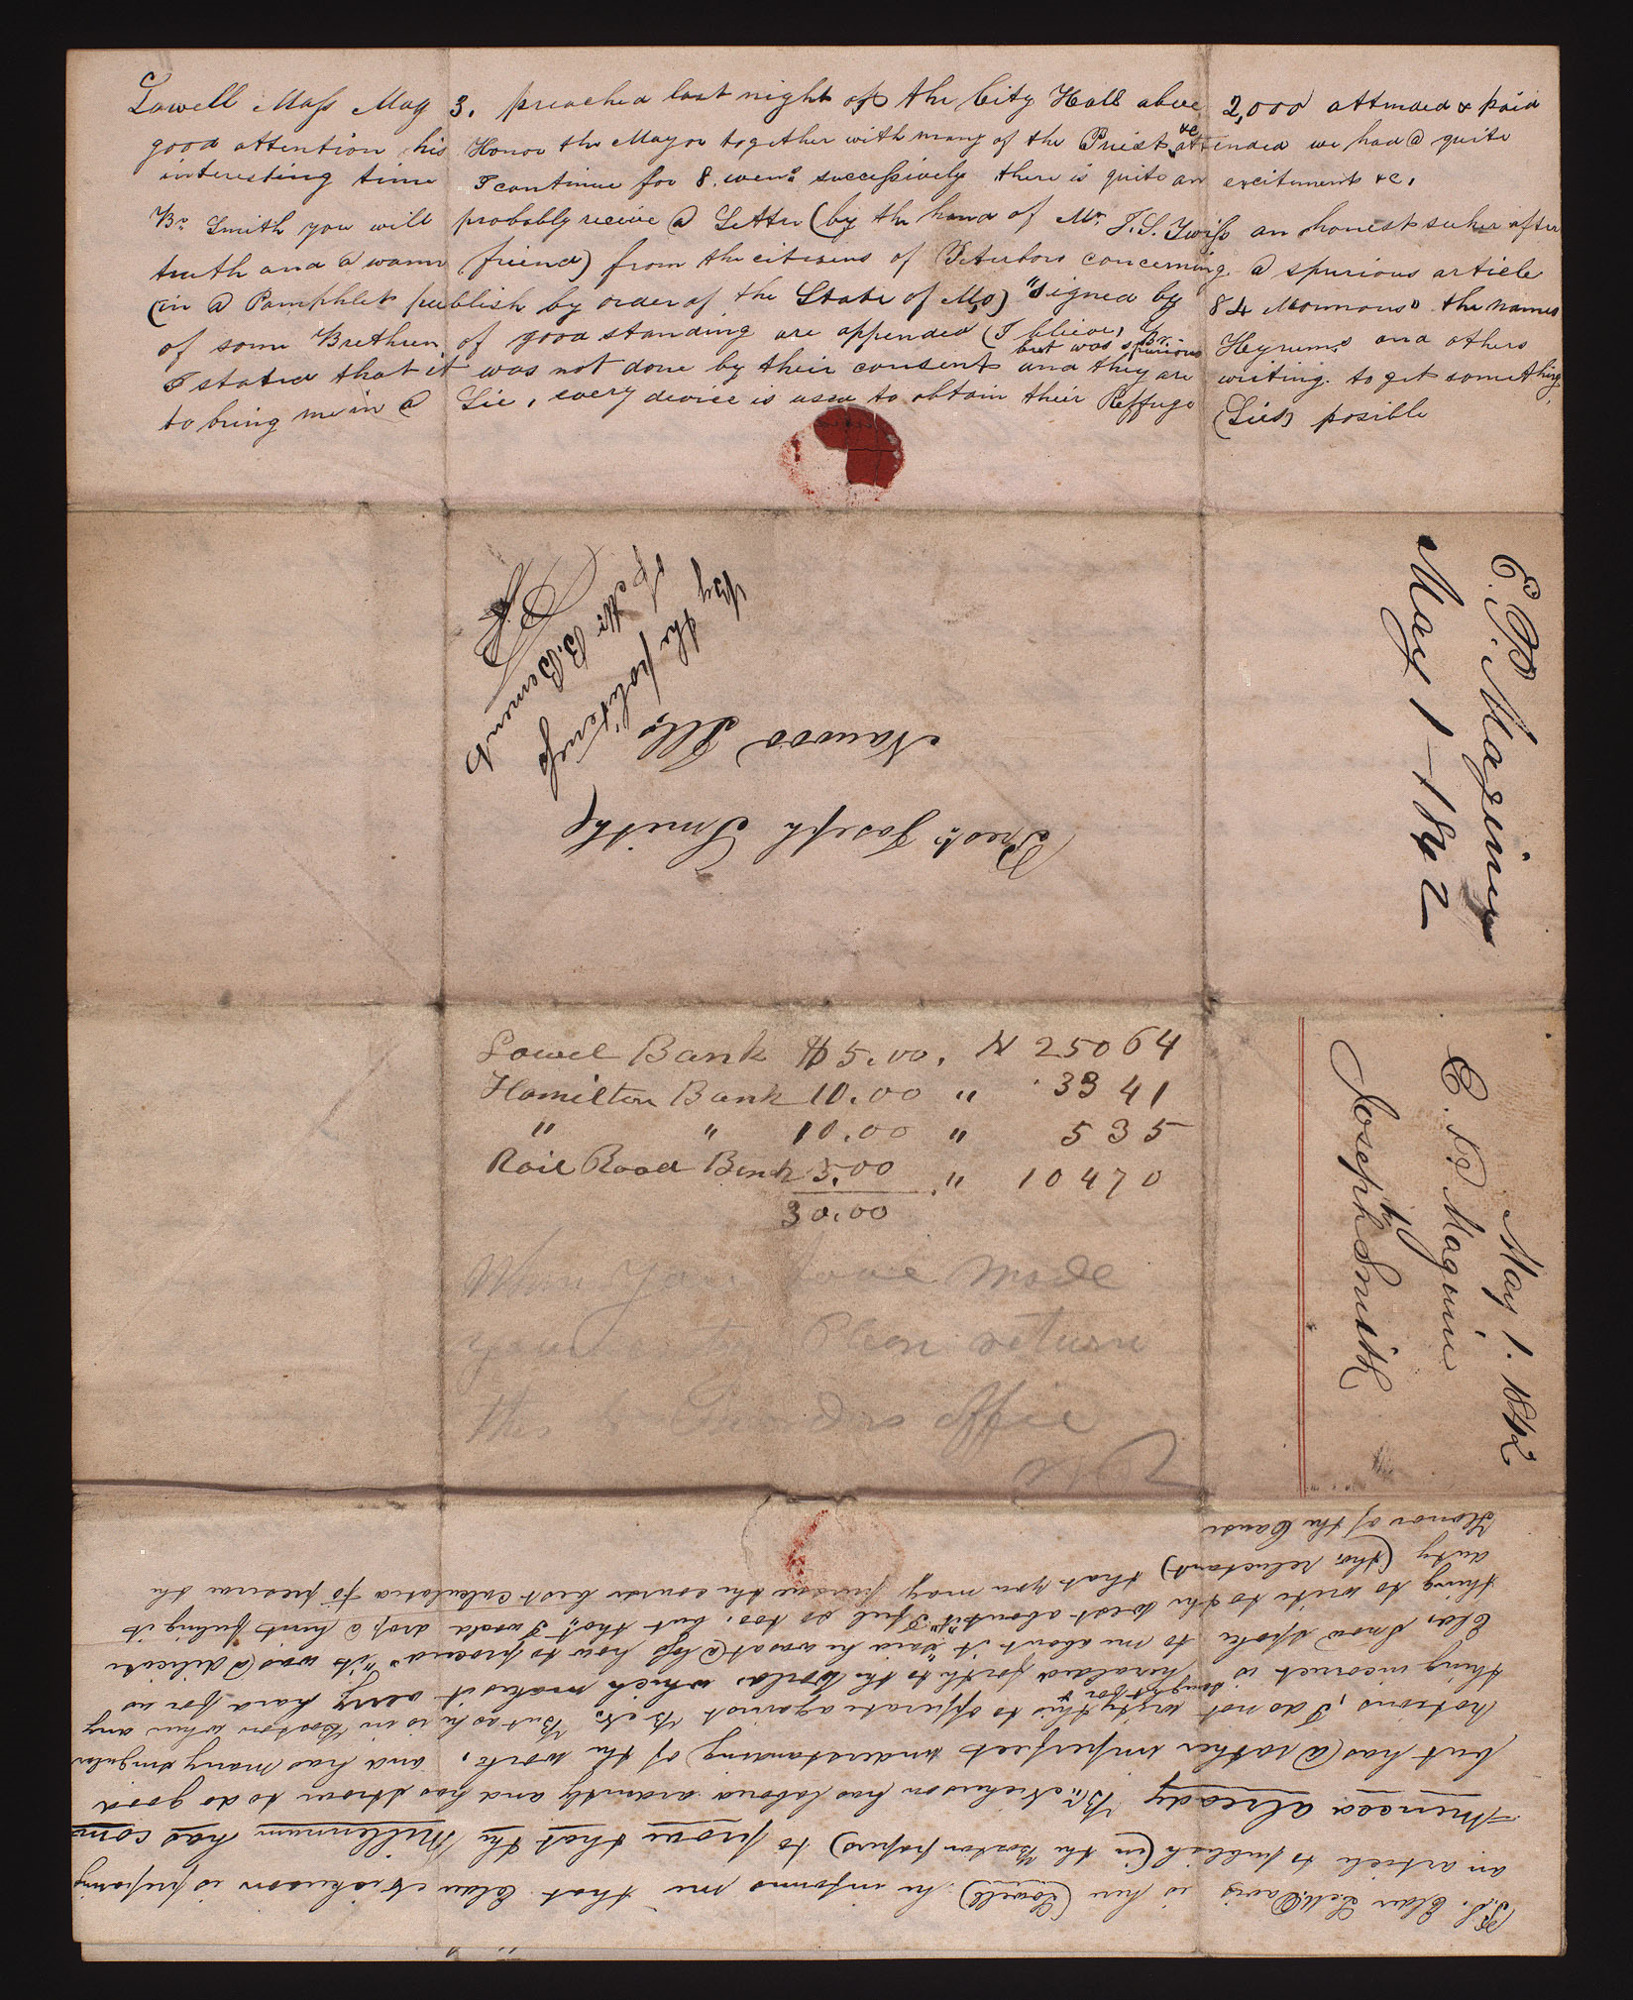 Lowell Mass May 3. preached last night at the City Hall above 2,000 attended & paid
good attention his Honor the Mayor together with many of the Priest &c attended we had a quite
interesting time I continue for 8. evens successively there is quite an excitement &c.
Br Smith you will probably receive a Letter (by the hand of Mr. T. S. Twiss an honest seeker after
truth and a warm friend) from the citizens of Peterboro concerning a spurious article
(in a Pamphlet publish by order of the State of Mo) "signed by 84 Mormons" the names
of some Brethren of good standing are appended (I believe, Br. Hyrum's and others
I stated that it was not done by their consent but was spurious and they are writing. to get something
to bring me in a Lie, every device is used to obtain their Reffuge (Lies) posible
By the politeness
of Mr B. Bement
Prest. Joseph Smith
Nauvoo Ills
E. P. Maginn
May 1 - 1842
Lowel Bank $5.00. N 25064
Hamilton Bank 10.00 " 3341
" " 10.00 " 535
Rail Road Bank 5.00 " 10470
30.00
When you have made
your Please return
this to Office
May 1. 1842
E. P. Maginn
to
Joseph Smith
P.S. Elder Davis is here (Lowell) he informs me that Elder Nickerson is prepairing
an article to publish (in the Boston papers) to prove that the Millennium has com
menced already Br. Nickerson has labored ardently and has strove to do good
but has a rather imperfect understanding of the work, and has many singular
notions, I do not write this to opperate against Br. N. But as he is in Boston when any
thing incorrect is heralded forth to the World, which makes it very hard for us
Eld. Snow spoke to me about it said he was at a loss how to proceed "it was a delicate
thing to write to the west about it" I feel so too, but tho. I would drop a hint feeling it
duty (tho. reluctant) that you may persue the course best calculated to preserve the
Honor of the Cause